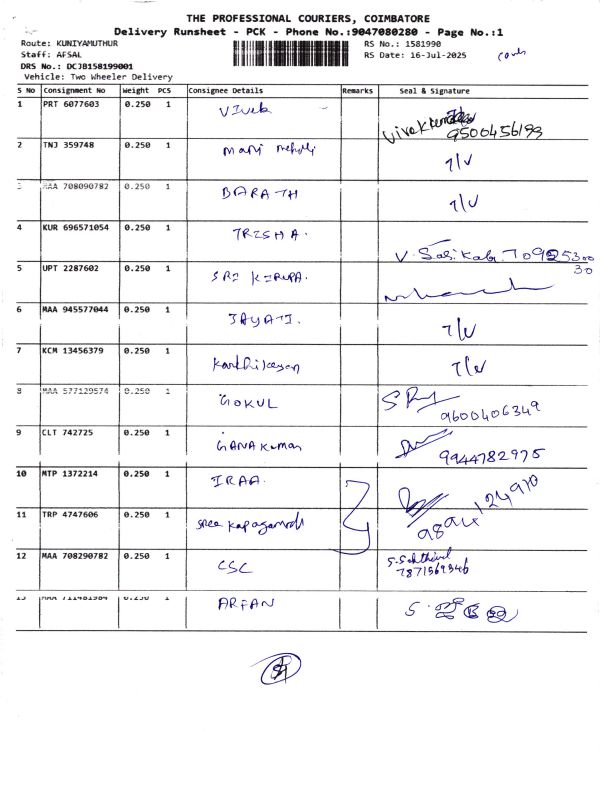 THE PROFESSIONAL COURIERS, COIMBATORE
Delivery Runsheet - PCK - Phone No.:9047080280 - Page No.:1
Route: KUNIYAMUTHUR
RS No.: 1581990
Staff: AFSAL
RS Date: 16-Jul-2025
DRS No.: DCJB158199001
Vehicle: Two Wheeler Delivery
S No Consignment No Weight PCS Consignee Details Remarks Seal & Signature
1 PRT 6077603 0.250 1 Vivek
9500456193
2 TNJ 359748 0.250 1 Mani
3 MAA 708090782 0.250 1 BARATH
4 KUR 696571054 0.250 1 TRISHA.
5 UPT 2287602 0.250 1 SRI
6 MAA 945577044 0.250 1 JAYATI.
7 KCM 13456379 0.250 1 Karthikeyan
8 MAA 577129574 0.250 1 GOKUL
9600406349
9 CLT 742725 0.250 1 GANA Kumar
9944782975
10 MTP 1372214 0.250 1 IRAA.
11 TRP 4747606 0.250 1 Sree
12 MAA 708290782 0.250 1 CSC S. Sakthivel
7871569346
13 MAA 711481984 0.250 1 ARFAN